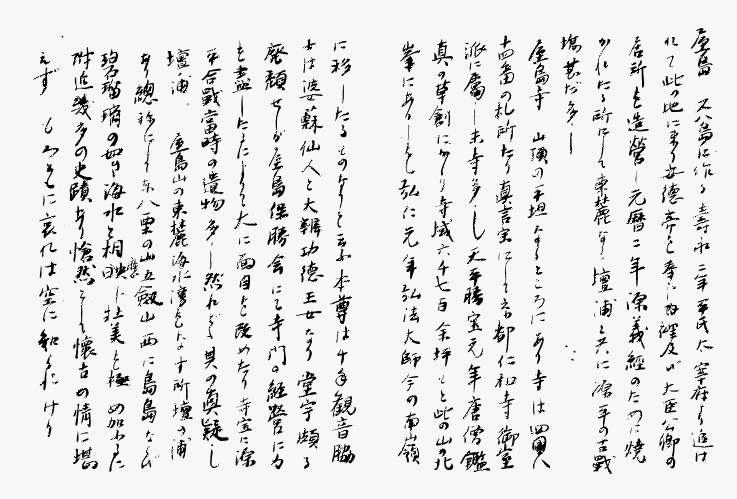 屋島 又八島に作る 壽永二年平氏太宰府より逃は
れて此の地に来り安徳帝を奉し内裡及び大臣公卿の
居所を造營し元暦二年源義經のために焼
かれたる所にして東麓なる壇浦と共に源平の古戰
場甚だ多し
屋島寺 山頂の平坦なるところにあり寺は四國八
十四番の札所たり真言宗にして京都仁和寺御室
派に屬し末寺多し天平勝宝元年唐僧鑑
真の草創にかゝり寺域六千七百余坪もと此の山の北
峯にありしを弘仁元年弘法大師今の南嶺
に移したるものなりと云ふ本尊は千手觀音脇
士は婆蘇仙人と大辯功徳天女なり堂宇頗る
廃頽せしが屋島保勝会にて寺門の經営に力
を盡したるによりて大に面目を改めたり寺宝に源
平合戰當時の遺物多し然れども其の真疑し
壇ノ浦 屋島山の東麓海水湾をなす所壇の浦
あり總称にして東八栗の山五劔山西に島島ならび
碧瑠璃の如き海水と相映じ壮美を極め加ふるに
附近幾多の史蹟あり愴然として懐古の情に堪
えず もろともに哀れは空に知られけり